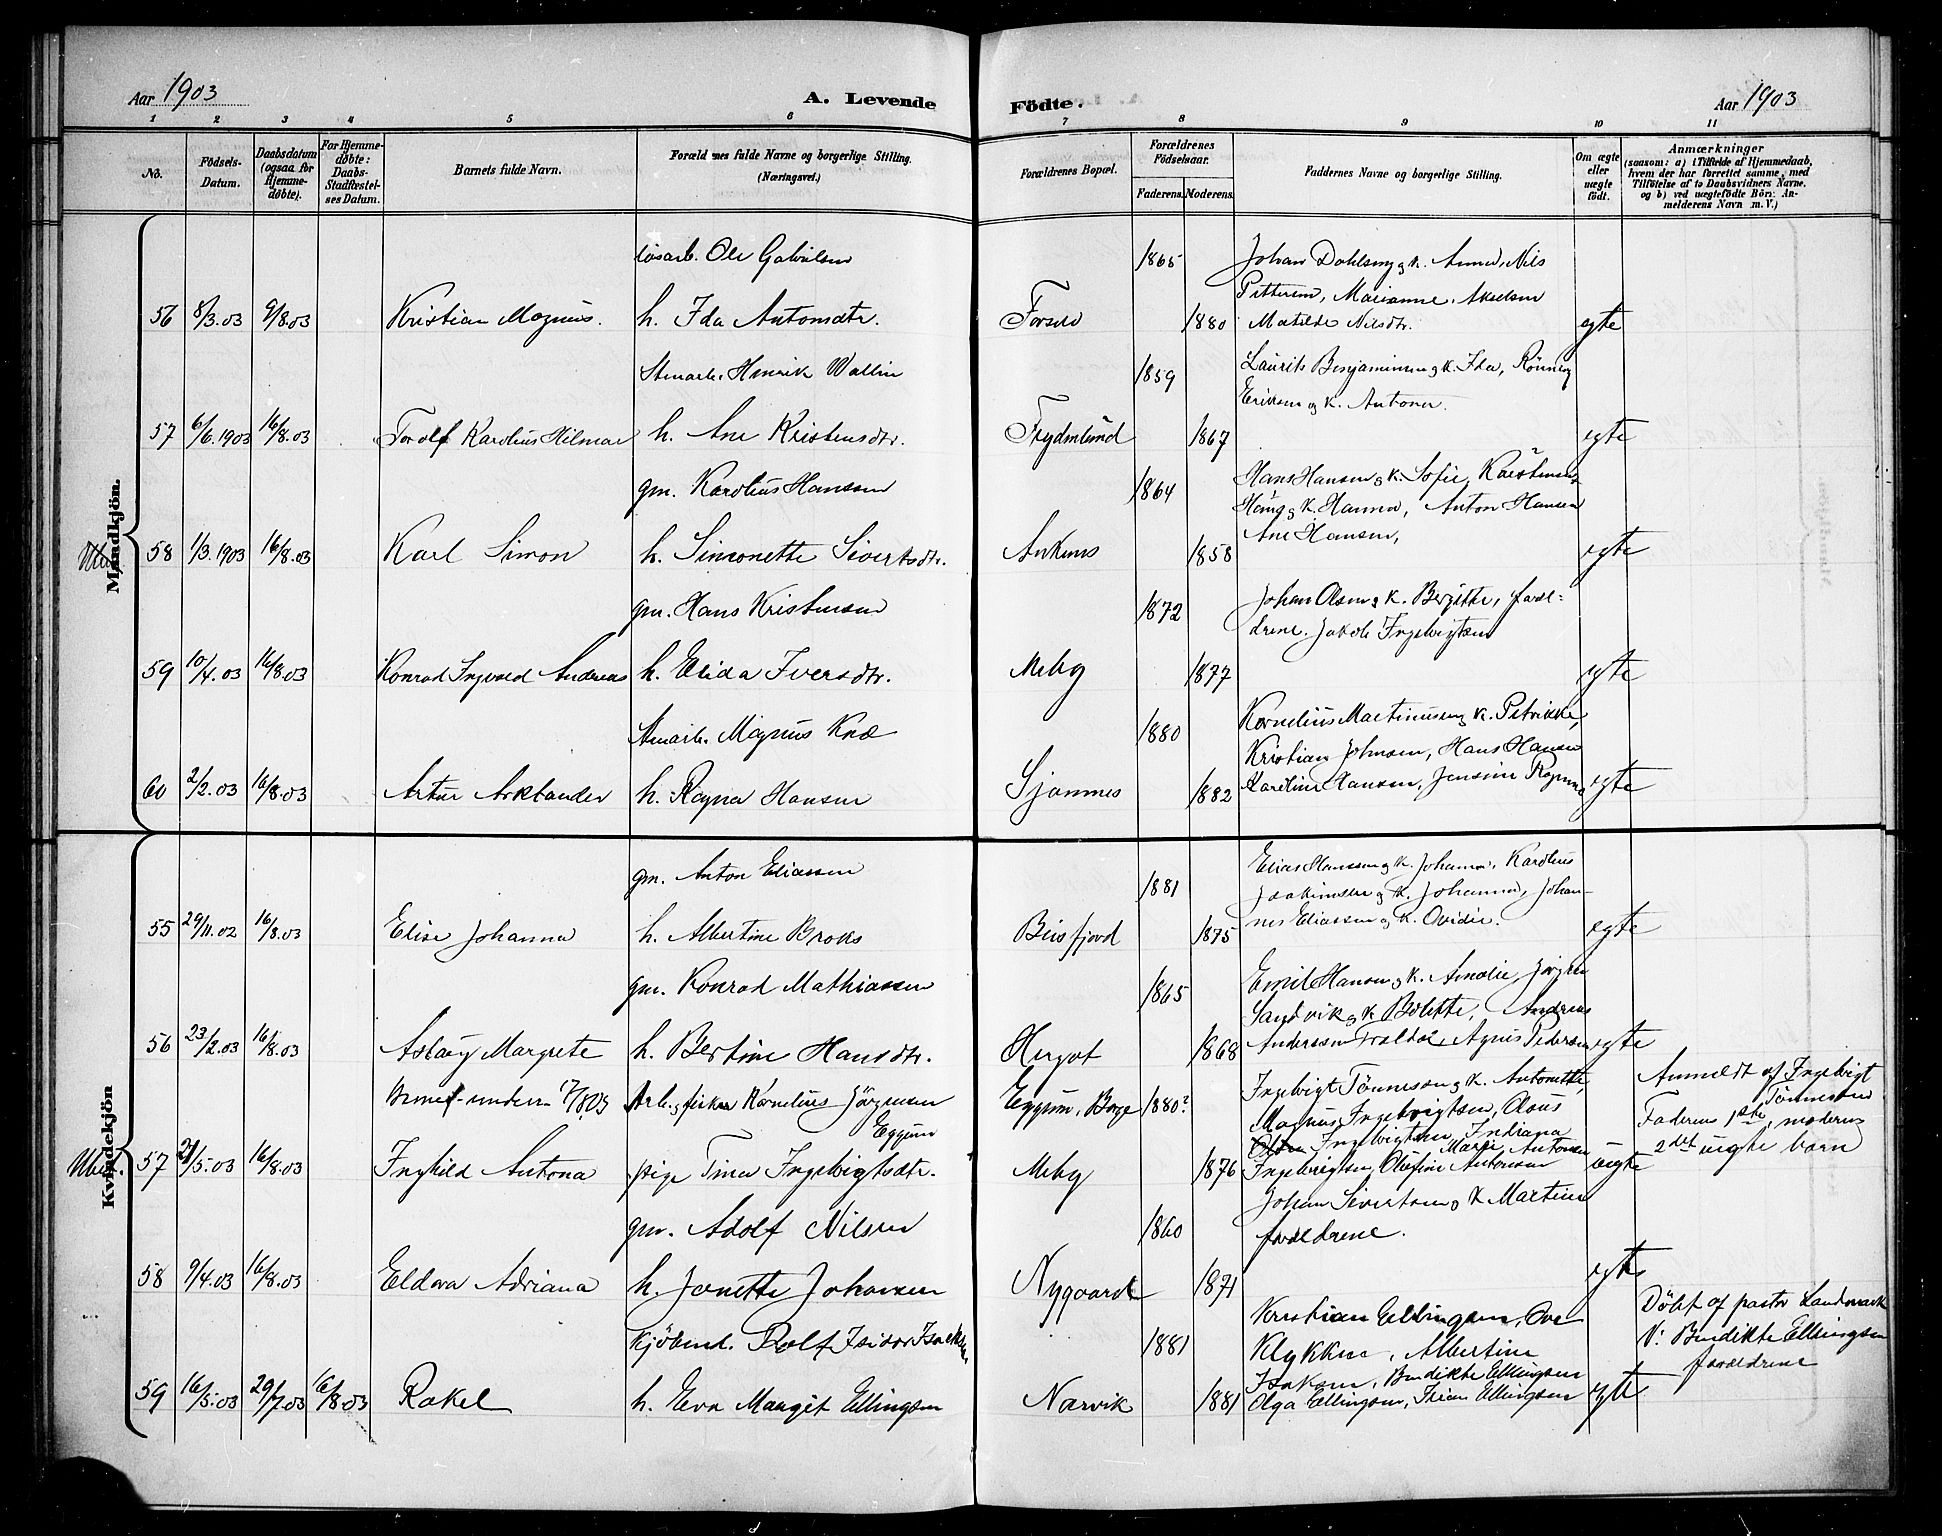 Aar 1903
A. Levende
Födte.
Aar 1903
1 2 3 4 5 6 7 8 9 10 11
No.
Födsels-Datum.
Daabsdatum (ogsaa for Hjemmedøbte).
For Hjemmedøbte: Daabs-Stadfæstelses Datum.
Barnets fulde Navn.
Forældrenes fulde Navne og borgerlige Stilling. (Næringsvei.)
Forældrenes Bopæl.
Forældrenes Födselsaar.
Faderens. Moderens.
Faddernes Navne og borgerlige Stilling.
Om ægte eller uægte födt.
Anmærkninger
(saasom: a) i Tilfælde af Hjemmedaab,
hvem der har forrettet samme, med
Tilföielse af to Daabsvidners Navne.
og b) ved uægtefödte Börn An-
melderens Navn m. V.)
Mandkjön.
løsarb. Ole 1865 Johan
56 8/3.03 9/8.03 Kristian Magnus. h. Ida Antonsdtr. 1880 Matilde Nilsdtr. egte
Marianne Akselsen
Henrik Wallin 1859 Laurits Benjaminsen og k. Ida,
Eriksen og k. Antona.
57 6/6.1903 16/8.03 Torolf Karolius Hilmar h. Ane Kristensdtr. Frydenlund 1867 egte
gm. Karolius Hanssen 1864 Hans Hansen og k. Sofie,
k. Hanna, Anton Hansen
58 1/3.1903 16/8.03 Karl Simon h. Simonette Sivertsdtr. Ankenes 1858 Ane Hansen, egte
gm. Hans Kristensen 1872 Johan Olsen og k. Bergitte, foræl-
drene. Jakob Ingebrigtsen
59 10/4.03 16/8.03 Konrad Ingvald Andreas h. Elida Iversdtr. Meby 1877 egte
Magnus 1880 Kornelius Martinussen og k. Petrikke,
Kristian Johnsen, Hans Hansen
60 2/2.03 16/8.03 Artur h. Ragna Hansen Sjømnes 1882 Hansen, egte
Kvindekjön
gm. Anton Eliassen 1881 Elias Hanssen og k. Johanna, Karolius
Joakimsen og k. Johanna, Johan-
55 29/11.02 16/8.03 Elise Johanna h. Albertine Broks Beisfjord 1875 nes Eliassen og k. Ovidie. egte
gm. Konrad Mathiassen 1865 Emil Hansen og k. Amalie
Sandvik og k. Andreas
56 23/2.03 16/8.03 Aslaug Margrete h. Bertine Hansdtr. Hergot 1868 Anderssen Agnes Pedersen egte
17/8 03 Arb. og fisker Kornelius Jörgensen Eggum, Borge 1880? Ingebrigt Tønnessen og k. Antonette,
Eggum
Magnus Ingebrigtsen, Olaus
Ingebrigtsen, Indiana
Anmeldt af Ingebrigt
Tønnessen
Faderens 1ste, moderens
2det uegte barn
57 21/5.03 16/8.03 Inghild Antona pige Tina Ingebrigtsdtr. Meby 1876 Ingebrigtsen, Olufine Antonsen uegte
Marie Antonsen
gm. Adolf Nilsen 1860 Johan Sivertsen og k. Martine
forældrene.
58 9/4.03 16/8.03 Eldora Adriana h. Janette Johansen Nygaard 1871 egte
Kjöbmd. Rolf Isidor Isaksen 1881 Kristian Ellingsen, Ove
Klykken, Albertine
Döbt af pastor Landmark
V: Bendikte Ellingsen
forældrene
59 16/5.03 29/7.03 16/8.03 Rakel h. Eva Margit Ellingsen Narvik 1881 Isaksen, Bendikte Ellingsen egte
Olga Ellingsen, Ellingsen